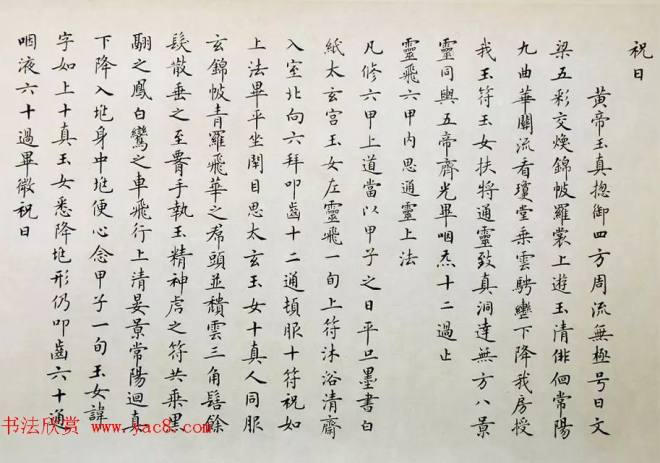 祝曰
黃帝玉真捴御四方周流無極号曰文
梁五彩交煥錦帔羅裳上遊玉清俳佪常陽
九曲華關流看瓊堂乘雲騁轡下降我房授
我玉符玉女扶將通靈致真洞達無方八景
靈同與五帝齊光畢咽炁十二過止
靈飛六甲內思通靈上法
凡修六甲上道當以甲子之日平旦墨書白
紙太玄宮玉女左靈飛一旬上符沐浴清齋
入室北向六拜叩齒十二通頓服十符祝如
上法畢平坐閉目思太玄玉女十真人同服
玄錦帔青羅飛華之帬頭並穨雲三角髻餘
髮散垂之至𦝫手執玉精神虎之符共乘黑
翮之鳳白鸞之車飛行上清晏景常陽迴真
下降入𠰥身中𠰥便心念甲子一旬玉女諱
字如上十真玉女悉降𠰥形仍叩齒六十通
咽液六十過畢微祝曰
书法欣赏 www.yac8.com